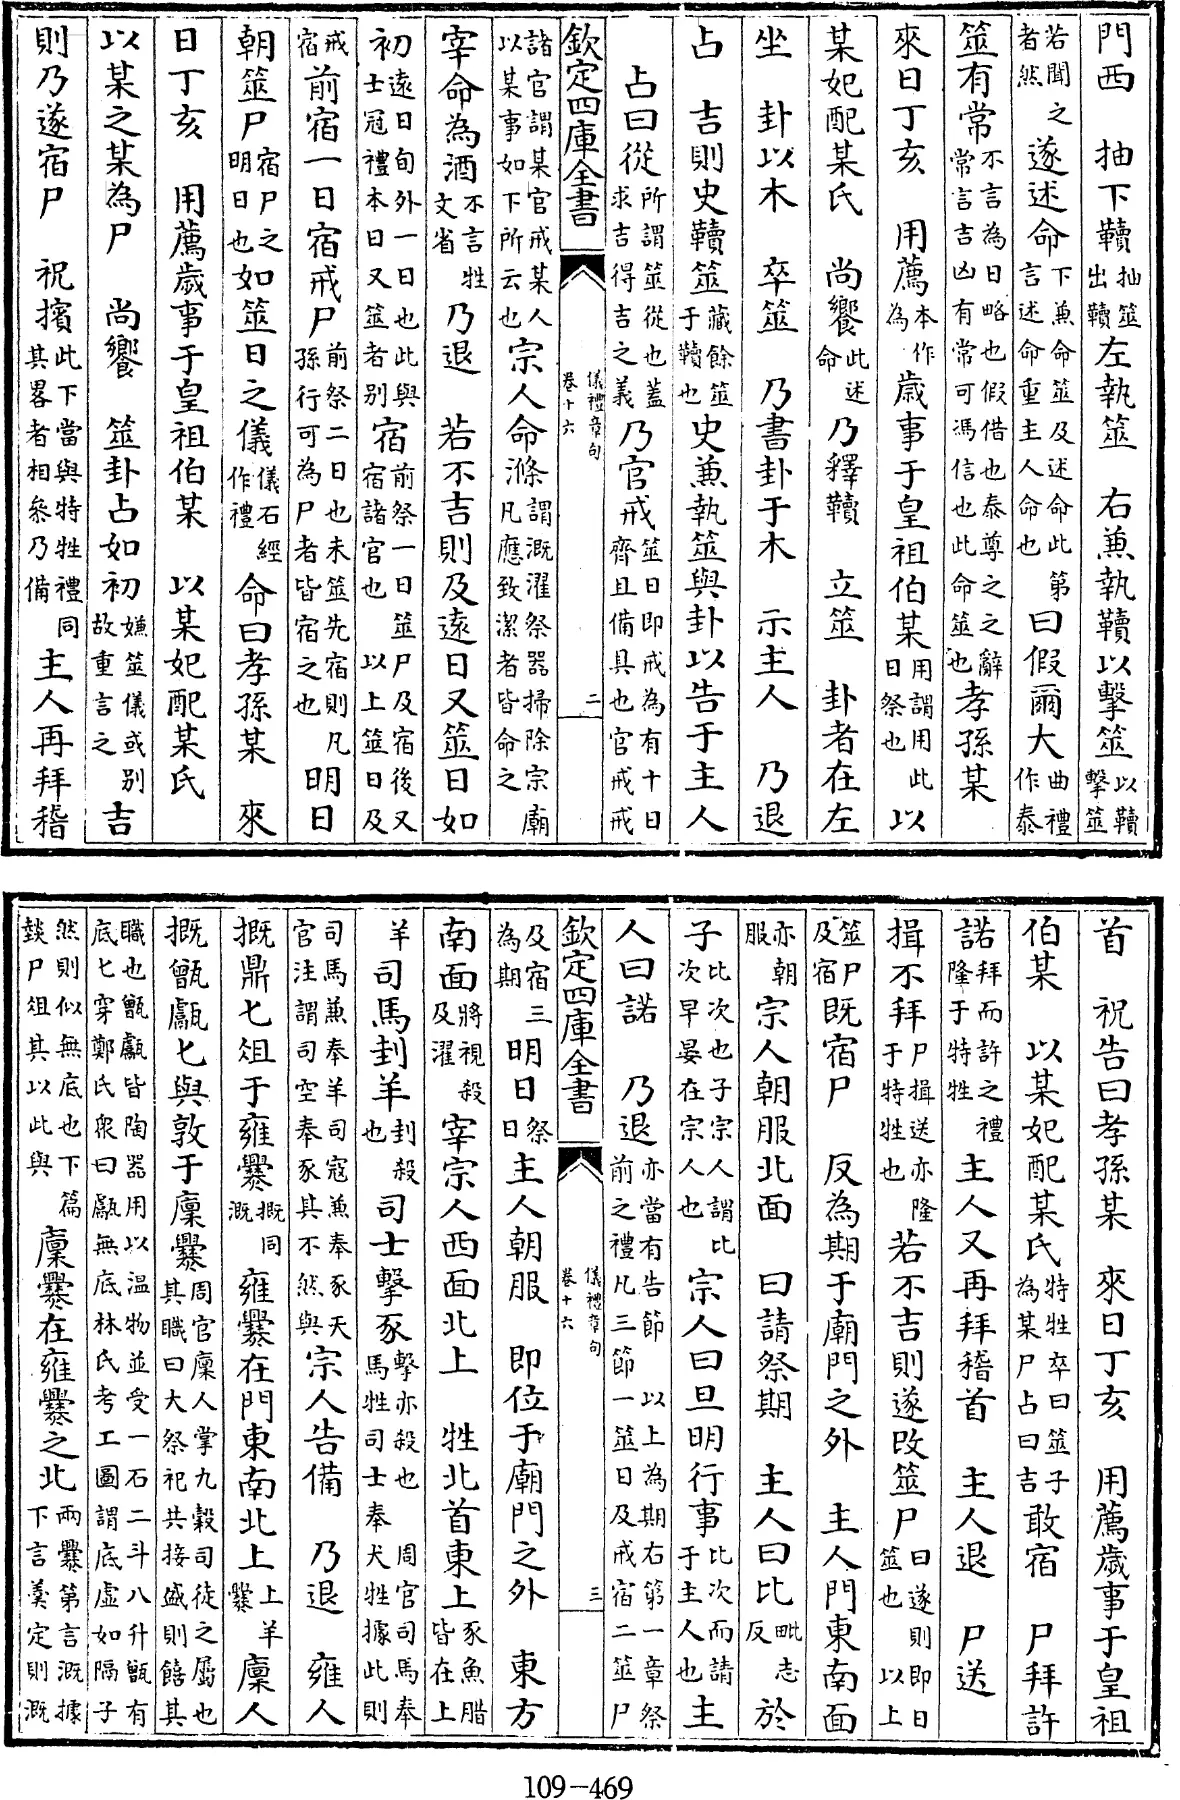 門西　抽下韇抽筮出韇左執筮　右兼執韇以擊筮以韇擊筮
若聞之者然遂述命下兼命筮及述命此第言述命重主人命也曰假爾大曲禮作泰
筮有常不言為日略也假借也泰尊之之辭常言吉凶有常可馮信也此命筮也孝孫某
來日丁亥　用薦本作為歲事于皇祖伯某用謂用此日祭也以
某妃配某氏　尚饗此述命乃釋韇　立筮　卦者在左
坐　卦以木　卒筮　乃書卦于木　示主人　乃退
占　吉則史韇筮藏餘筮于韇也史兼執筮與卦以告于主人
占曰從所謂筮從也蓋求吉得吉之義乃官戒筮日即戒為有十日齊且備具也官戒戒
欽定四庫全書　儀禮章句　卷十六　二
諸官謂某官戒某人以某事如下所云也宗人命滌謂溉濯祭器掃除宗廟凡應致潔者皆命之
宰命為酒不言牲文省乃退　若不吉則及遠日又筮日如
初遠日旬外一日也此與士冠禮本日又筮者別宿前祭一日筮尸及宿後又宿諸官也以上筮日及
戒宿前宿一日宿戒尸前祭二日也未筮先宿則凡孫行可為尸者皆宿之也明日
朝筮尸宿尸之明日也如筮日之儀儀石經作禮命曰孝孫某　來
日丁亥　用薦歲事于皇祖伯某　以某妃配某氏
以某之某為尸　尚饗　筮卦占如初嫌筮儀或別故重言之吉
則乃遂宿尸　祝擯此下當與特牲禮同其畧者相參乃備主人再拜稽
首　祝告曰孝孫某　來日丁亥　用薦歲事于皇祖
伯某　以某妃配某氏特牲卒曰筮子為某尸占曰吉敢宿　尸拜許
諾拜而許之禮隆于特牲主人又再拜稽首　主人退　尸送
揖不拜尸揖送亦隆于特牲也若不吉則遂改筮尸曰遂則即日筮也以上
筮尸及宿尸既宿尸　反為期于廟門之外　主人門東南面
亦朝服宗人朝服北面　曰請祭期　主人曰比毗志反於
子比次也子宗人謂比次早晏在宗人也宗人曰旦明行事比次而請于主人也主
人曰諾　乃退亦當有告節以上為期右第一章祭前之禮凡三節一筮日及戒宿二筮尸
欽定四庫全書　儀禮章句　卷十六　三
及宿三為期明日祭日主人朝服　即位于廟門之外　東方
南面將視殺及濯宰宗人西面北上　牲北首東上豕魚腊皆在上
羊司馬刲羊刲殺也司士擊豕擊亦殺也周官司馬奉馬牲司士奉犬牲據此則
司馬兼奉羊司寇兼奉豕天官注謂司空奉豕其不然與宗人告備　乃退　雍人
摡鼎匕俎于雍爨摡同溉雍爨在門東南北上上羊爨廩人
摡甑甗匕與敦于廩爨周官廩人掌九穀司徒之屬也其職曰大祭祀共接盛則饎其
職也甑甗皆陶器用以温物並受一石二斗八升甑有底七穿鄭氏衆曰甗無底林氏考工圖謂底虛如隔子
然則似無底也下篇燅尸俎其以此與廩爨在雍爨之北兩爨第言溉據下言羹定則溉
109-469